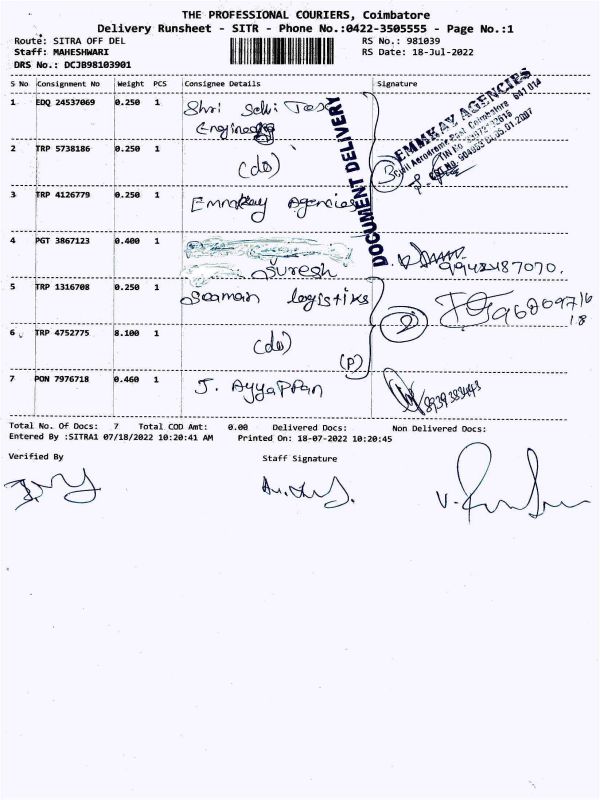 THE PROFESSIONAL COURIERS, Coimbatore
Delivery Runsheet - SITR - Phone No.:0422-3505555 - Page No.:1
Route: SITRA OFF DEL RS No.: 981039
Staff: MAHESHWARI RS Date: 18-Jul-2022
DRS No.: DCJB98103901
S No Consignment No Weight PCS Consignee Details Signature
1 EDQ 24537069 0.250 1 Shri Selvi Tex
Engineering
2 TRP 5738186 0.250 1 (do) 3
3 TRP 4126779 0.250 1 Emmkay Agencies
DOCUMENT DELIVERY
EMMKAY AGENCIES
Civil Aerodrome Post, Coimbatore 641 014
4 PGT 3867123 0.400 1 Suresh 9942487070.
5 TRP 1316708 0.250 1 Seaman logistiks
6 TRP 4752775 8.100 1 (do) 2
(P)
7 PON 7976718 0.460 1 J. Ayyappan
Total No. Of Docs: 7 Total COD Amt: 0.00 Delivered Docs: Non Delivered Docs:
Entered By :SITRA1 07/18/2022 10:20:41 AM Printed On: 18-07-2022 10:20:45
Verified By Staff Signature